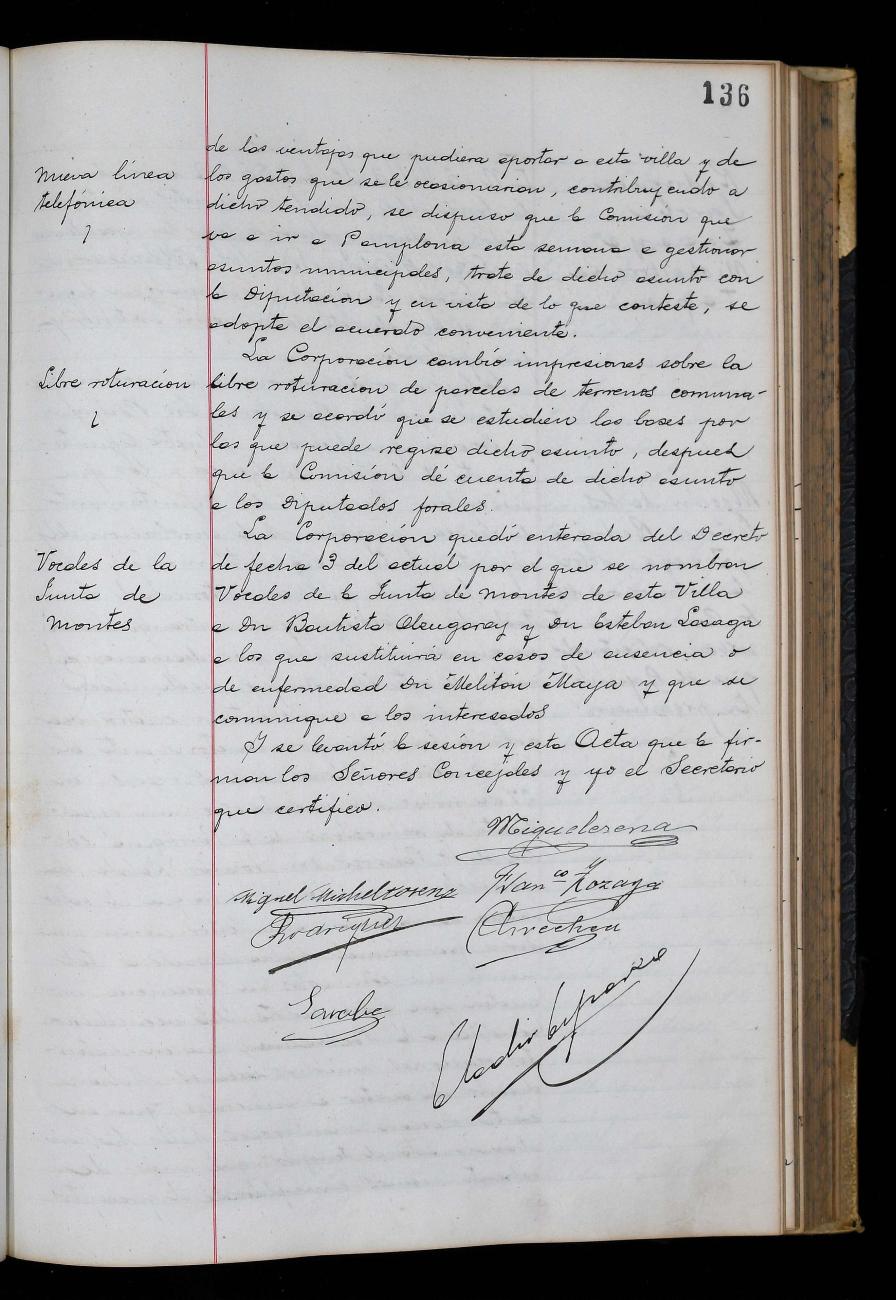 136
Nueva línea
telefónica
de las ventajas que pudiera aportar a esta villa y de
los gastos que se le ocasionarian, contribuyendo a
dicho tendido, se dispuso que la Comisión que
va a ir a Pamplona esta semana a gestionar
asuntos municipales, trate de dicho asunto con
la Diputacion y en vista de lo que conteste, se
adopte el acuerdo conveniente.
Libre roturacion
La Corporación cambió impresiones sobre la
libre roturacion de parcelas de terrenos comuna-
les y se acordó que se estudien las bases por
las que puede regirse dicho asunto, despues
que la Comisión dé cuenta de dicho asunto
a los Diputados forales.
Vocales de la
Junta de
Montes
La Corporación quedó enterada del Decreto
de fecha 3 del actual por el que se nombran
Vocales de la Junta de Montes de esta Villa
a Dn Bautista Olaugaray y Dn Esteban Lasaga
a los que sustituirá en casos de ausencia o
de enfermedad Dn Melitón Maya y que se
comunique a los interesados
Y se levantó la sesión y esta Acta que la fir-
man los Señores Concejales y yo el Secretario
que certifico.
Miguelerena
Miguel Michelxorena
Rodriguez
Arrechea
Eladio Esparza